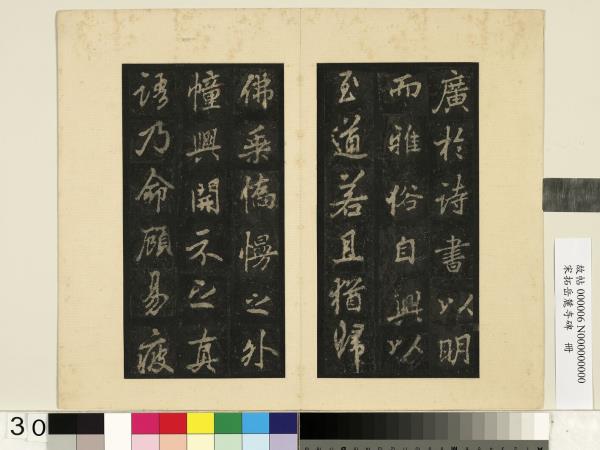 廣於詩書以明
而雅俗自興以
至道若且猶歸
佛乘憍慢之外
幢興開示之真
語乃命顧易疲
故帖 000006 N000000000
宋拓岳麓寺碑 冊
30